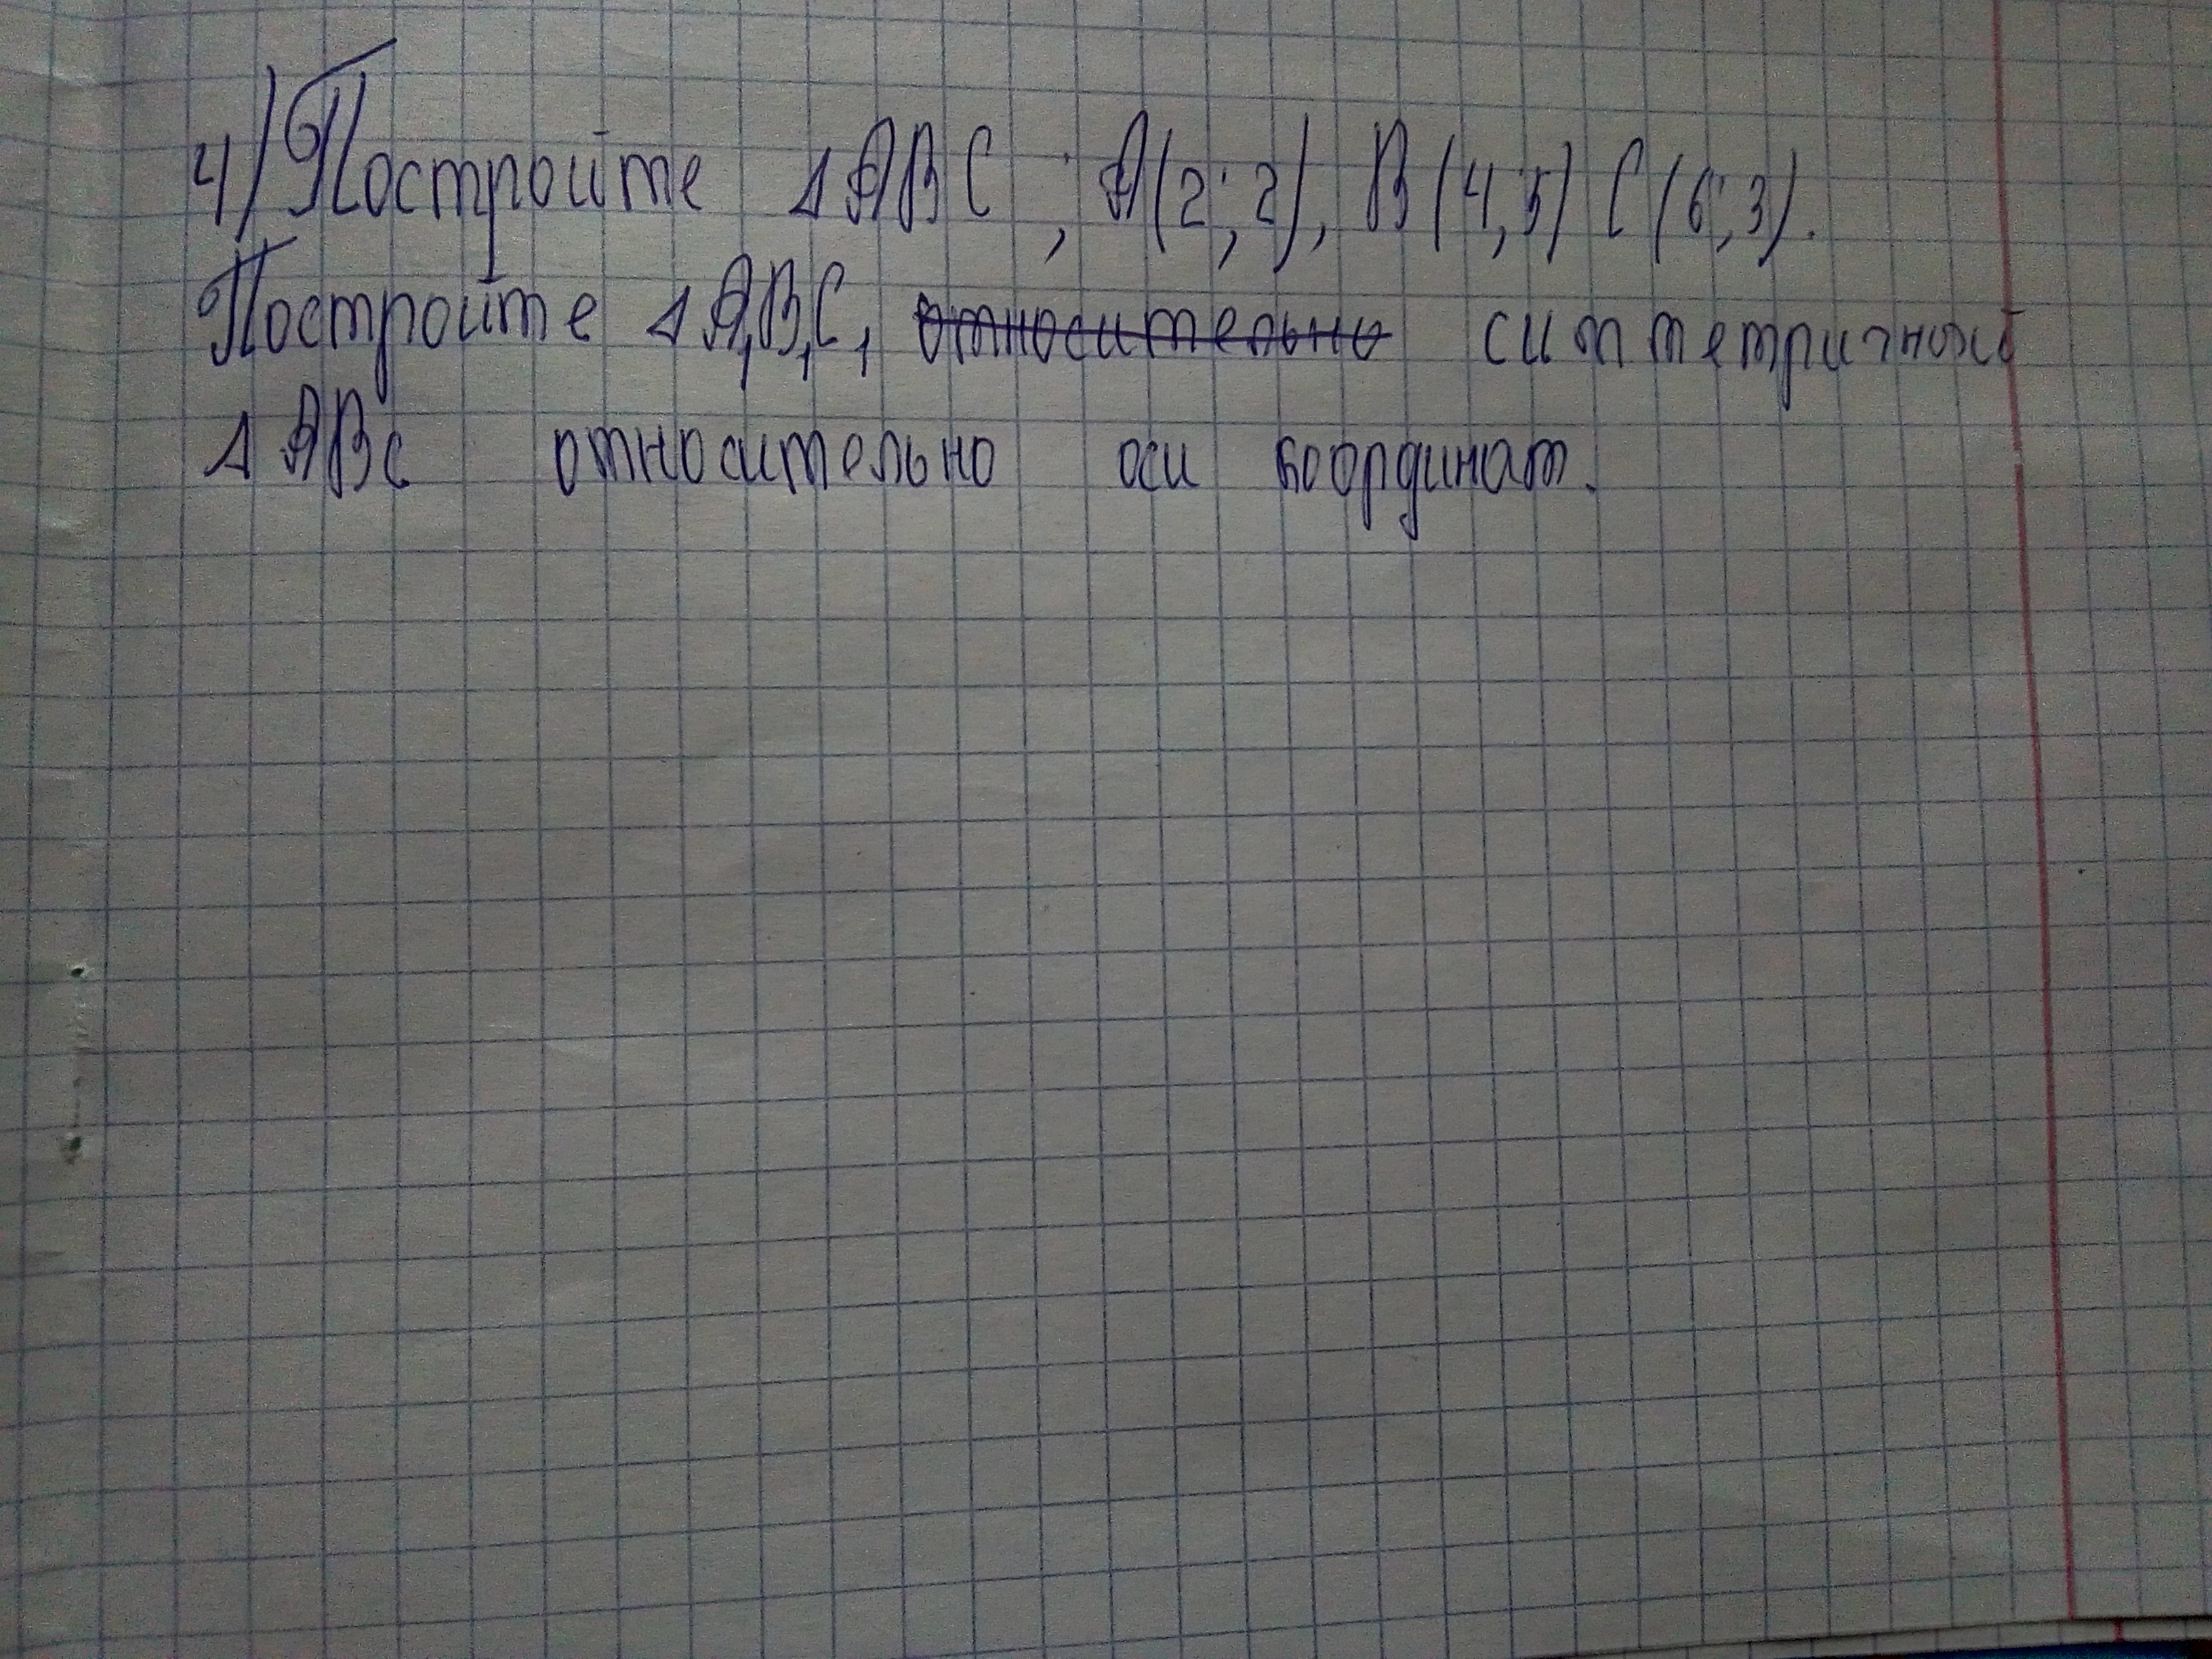 4) Постройте △ABC ; A(2;2), B(4;5) C(6;3).
Постройте △A₁B₁C₁ ~~относительно~~ симметричный
△ABC относительно оси координат.